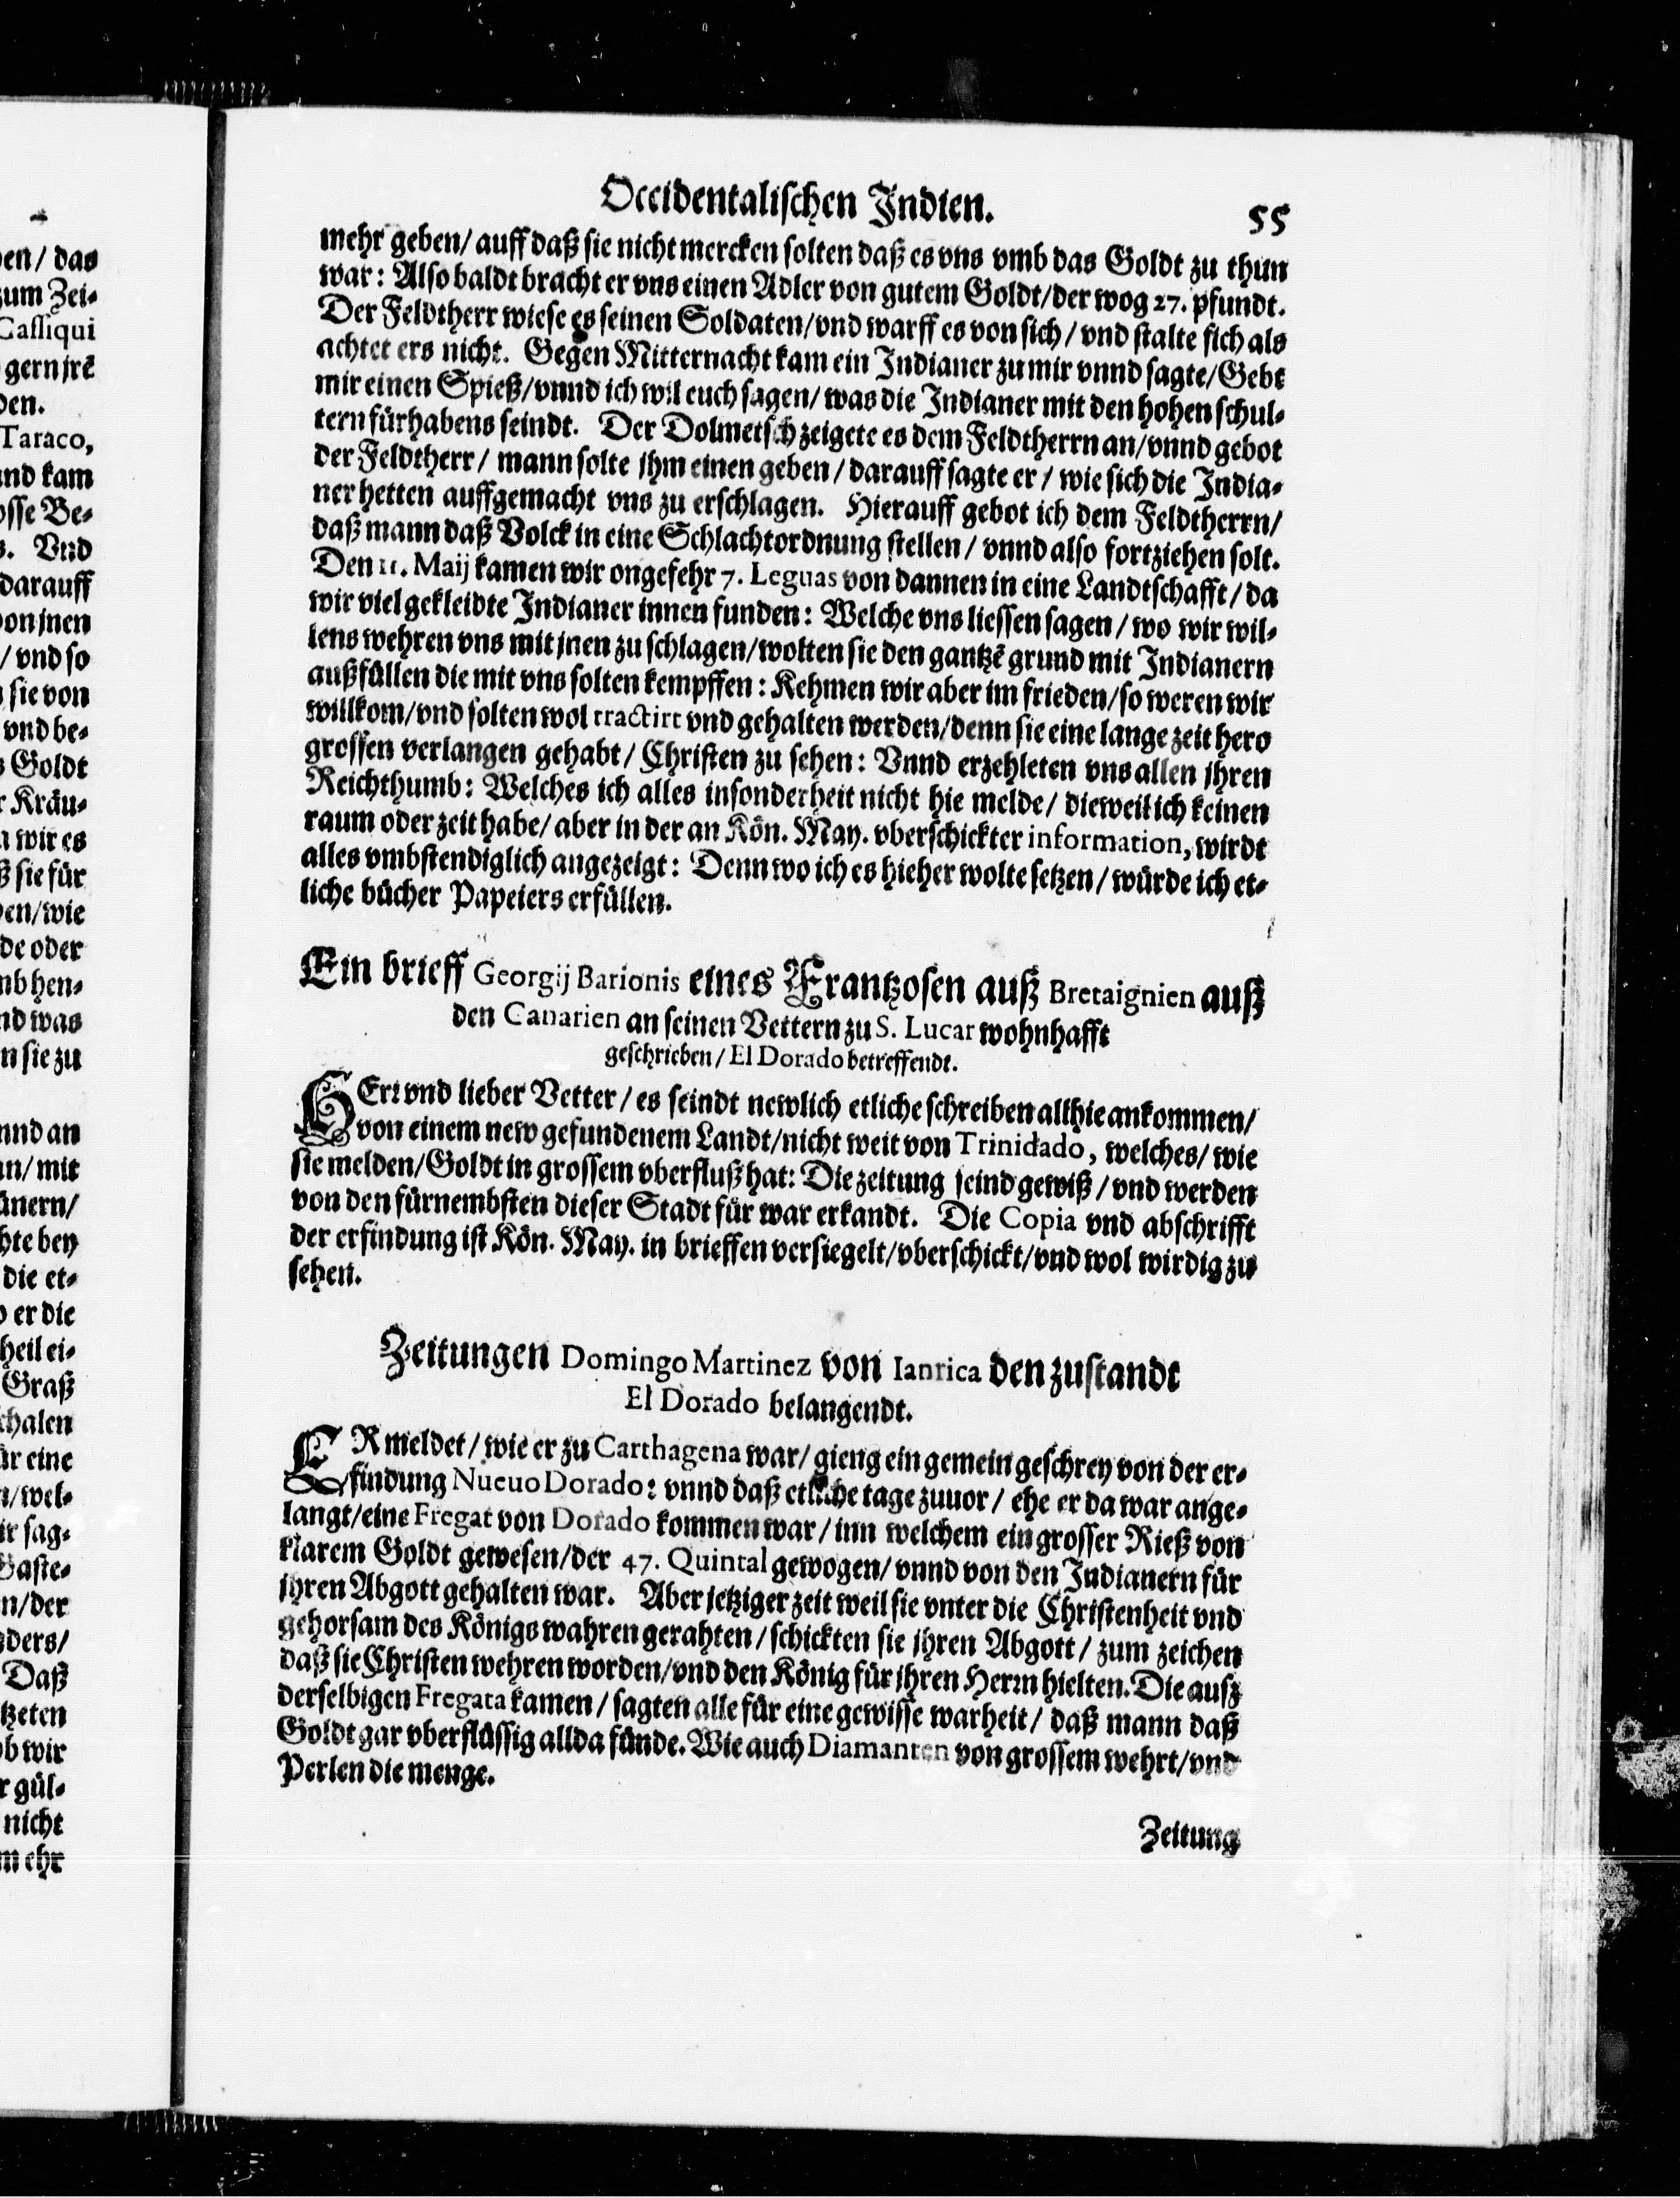 Occidentalischen Indien. 55
mehr geben/ auff daß sie nicht mercken solten daß es vns vmb das Goldt zu thun
war: Also baldt bracht er vns einen Adler von gutem Goldt/der wog 27. pfundt.
Der Feldtherr wiese es seinen Soldaten/vnd warff es von sich/ vnd stalte sich als
achtet ers nicht. Gegen Mitternacht kam ein Indianer zu mir vnnd sagte/Gebt
mir einen Spieß/vnnd ich wil euch sagen/ was die Indianer mit den hohen schul-
tern fürhabens seindt. Der Dolmetsch zeigete es dem Feldtherrn an/vnnd gebot
der Feldtherr/ mann solte jhm einen geben/ darauff sagte er/ wie sich die India-
ner hetten auffgemacht vns zu erschlagen. Hierauff gebot ich dem Feldtherrn/
daß mann daß Volck in eine Schlachtordnung stellen/ vnnd also fortziehen solt.
Den 11. Maij kamen wir ongefehr 7. Leguas von dannen in eine Landtschafft/ da
wir viel gekleidte Indianer innen funden: Welche vns liessen sagen/ wo wir wil-
lens wehren vns mit jnen zu schlagen/wolten sie den gantzē grund mit Indianern
außfüllen die mit vns solten kempffen: Kehmen wir aber im frieden/so weren wir
willkom/vnd solten wol tractirt vnd gehalten werden/denn sie eine lange zeit hero
grossen verlangen gehabt/ Christen zu sehen: Vnnd erzehleten vns allen jhren
Reichthumb: Welches ich alles insonderheit nicht hie melde/ dieweil ich keinen
raum oder zeit habe/ aber in der an Kön. May. vberschickter information, wirdt
alles vmbstendiglich angezeigt: Denn wo ich es hieher wolte setzen/ würde ich et-
liche bücher Papeiers erfüllen.
Ein brieff Georgij Barionis eines Frantzosen auß Bretaignien auß
den Canarien an seinen Vettern zu S. Lucar wohnhafft
geschrieben/ El Dorado betreffendt.
HErr vnd lieber Vetter/ es seindt newlich etliche schreiben allhie ankommen/
von einem new gefundenem Landt/nicht weit von Trinidado, welches/ wie
sie melden/Goldt in grossem vberfluß hat: Die zeitung seind gewiß/ vnd werden
von den fürnembsten dieser Stadt für war erkandt. Die Copia vnd abschrifft
der erfindung ist Kön. May. in brieffen versiegelt/vberschickt/vnd wol wirdig zu
sehen.
Zeitungen Domingo Martinez von Ianrica den zustandt
El Dorado belangendt.
ER meldet/ wie er zu Carthagena war/ gieng ein gemein geschrey von der er-
findung Nueuo Dorado: vnnd daß etliche tage zuuor/ ehe er da war ange-
langt/eine Fregat von Dorado kommen war/ inn welchem ein grosser Rieß von
klarem Goldt gewesen/der 47. Quintal gewogen/ vnnd von den Indianern für
jhren Abgott gehalten war. Aber jetziger zeit weil sie vnter die Christenheit vnd
gehorsam des Königs wahren gerahten/ schickten sie jhren Abgott/ zum zeichen
daß sie Christen wehren worden/vnd den König für jhren Herrn hielten. Die auß
derselbigen Fregata kamen/ sagten alle für eine gewisse warheit/ daß mann daß
Goldt gar vberflüssig allda fünde. Wie auch Diamanten von grossem wehrt/vnd
Perlen die menge.
Zeitung